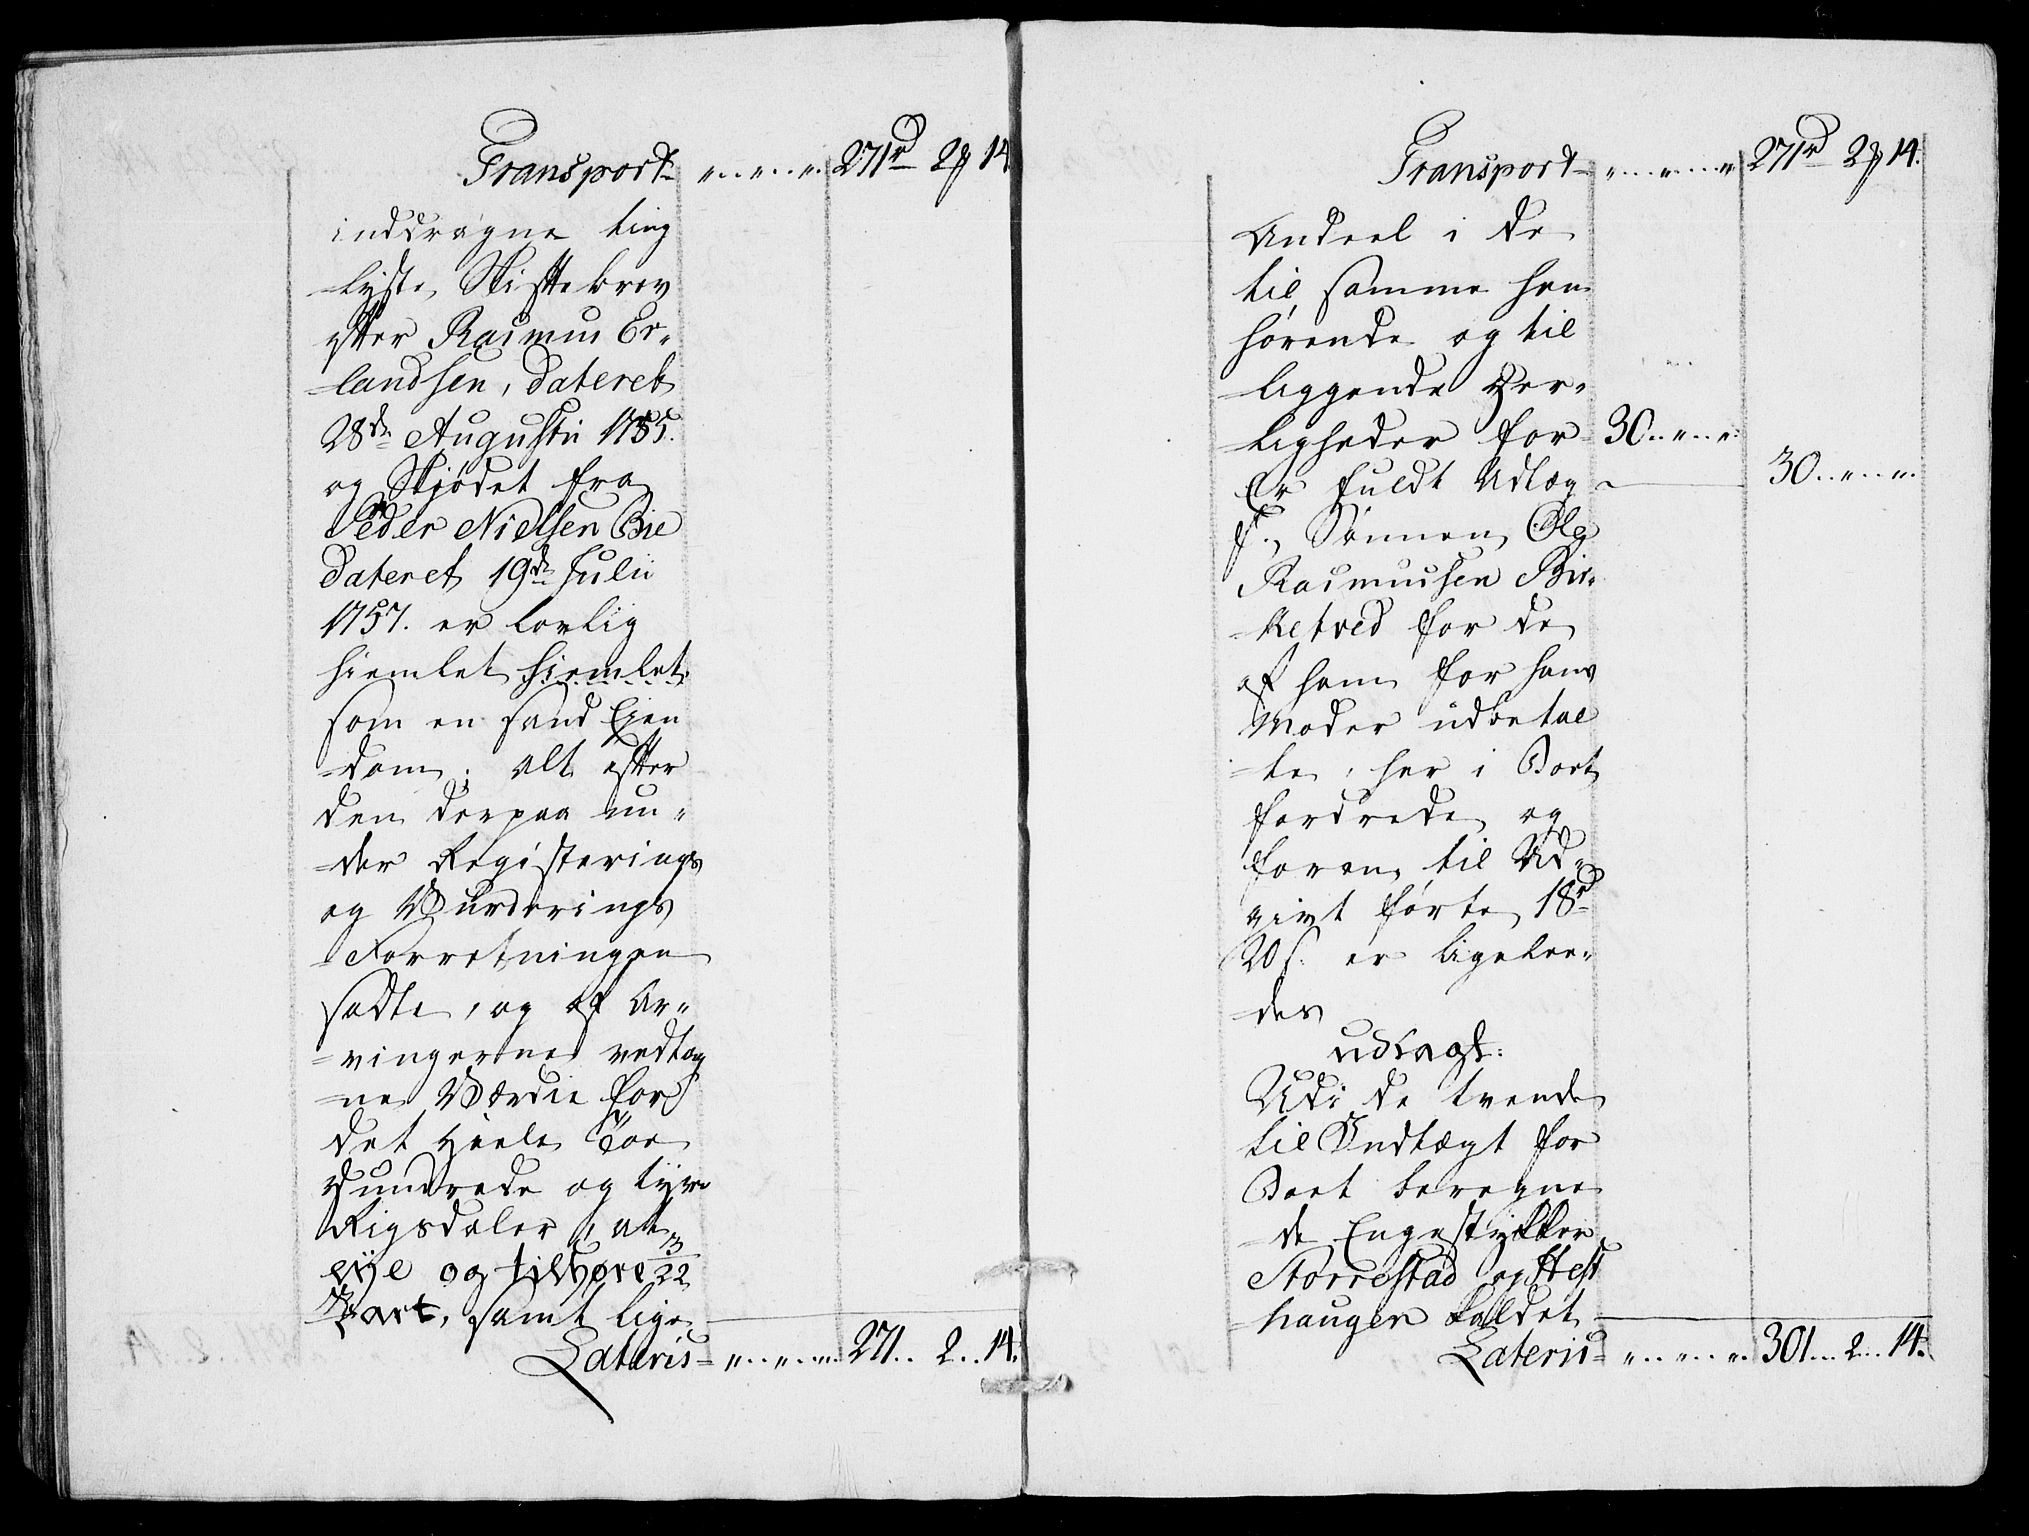 Transport „..„..„. 271rd 2ꝗ 14
inddragne ting
lyste Skiftebrev
efter Rasmus Er-
landsen, dateret
28de Augusti 1755.
og Skjødet fra
Peder Nielsen Bie
dateret 19de Julii
1757. er lovlig
hiemlet hiemlet
som en sand Eien
dom; alt efter
den derpaa un-
der Registerings
og Vurderings
Forretningen
sadte, og af Ar-
vingerne vedtag
ne Værdie for
det heele Toe
Hundrede og tyve
Rigsdaler, at
eije og tilhøre 13/22
Part, samt lige
Lateris „..„..„. 271.. 2.. 14.
Transport „..„..„. 271rd 2ꝗ 14.
Andeel i de
til samme hen
hørende og til
liggende Her-
ligheder for 30..„..„.
Er fuldt Udlæg 30..„..„.
f. Sønnen Ole
Rasmussen Bir-
ketved for de
af ham for hans
Moder udbetal
te, her i Boet
fordrede og
foran til Ud-
givt førte 18rd
20 s. er ligelee-
des
udlagt:
Udi de tvende
til Indtægt for
Boet beregne
de Engestykker
Storrestad og Hest
haugen kaldet
Lateris „..„..„. 301... 2... 14.